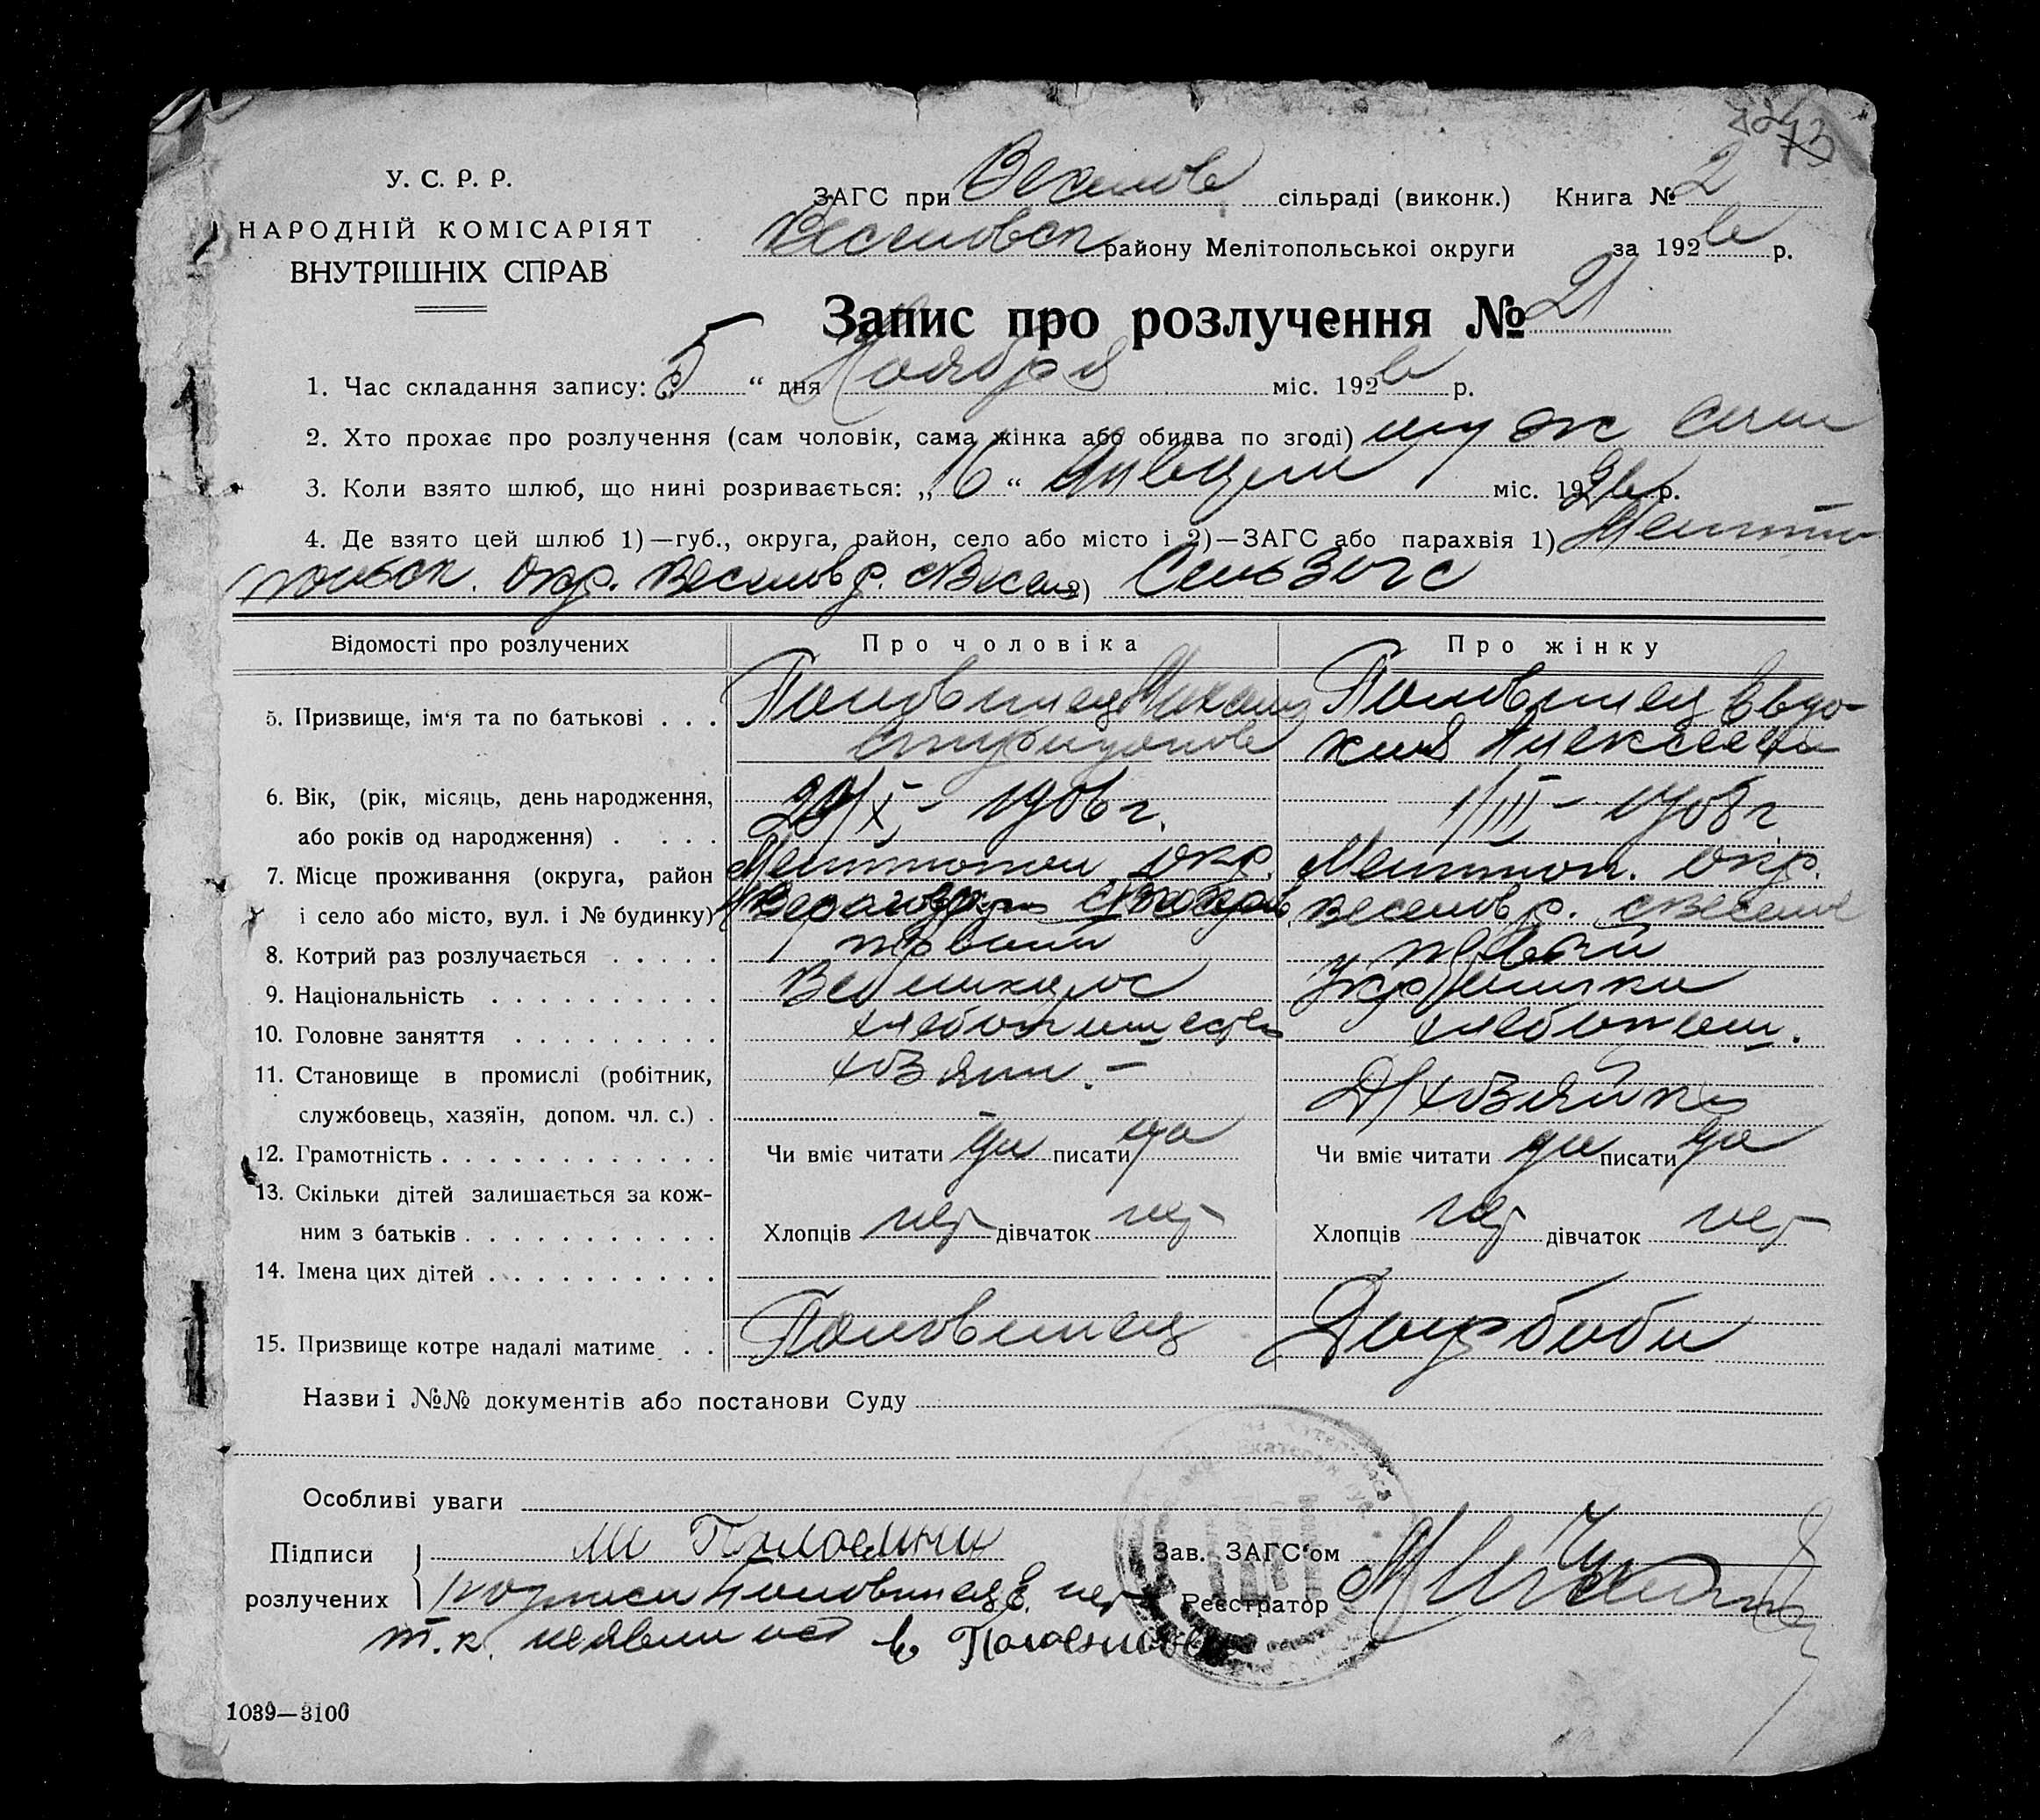 73
У. С. Р. Р.
НАРОДНІЙ КОМІСАРІЯТ
ВНУТРІШНІХ СПРАВ
ЗАГС при Веселов сільраді (виконк.) Книга № 2
Веселовск району Мелітопольської округи за 1926 р.
Запис про розлучення № 21
1. Час складання запису: „5“ дня Ноября міс. 1926 р.
2. Хто прохає про розлучення (сам чоловік, сама жінка або обидва по згоді) муж сам
3. Коли взято шлюб, що нині розривається: „16“ міс. 1926 р.
4. Де взято цей шлюб 1)—губ., округа, район, село або місто і 2)—ЗАГС або парахвія 1) Мелито
польск. окр. Веселов р. с Весел 2) СельЗагс
Відомості про розлучених Про чоловіка Про жінку
5. Призвище, ім'я та по батькові . . . Половинец Михаил Половинец Евдо-
Спиридонов кия Алексеева
6. Вік, (рік, місяць, день народження,
або років од народження) . . . . 29/X - 1906 г. 1/III - 1908 г
7. Місце проживання (округа, район Мелитопол. окр. Мелитоп. окр.
і село або місто, вул. і № будинку) Веселов р. с Веселое
8. Котрий раз розлучається . . . . . первый первый
9. Національність . . . . . . . . . . Великорос Украинка
10. Головне заняття . . . . . . . . . хлебопашество хлебопаш.
11. Становище в промислі (робітник, хозяин. –
службовець, хазяїн, допом. чл. с.) . Д/хозяйка
12. Грамотність . . . . . . . . . . . . . Чи вміє читати да писати да Чи вміє читати да писати да
13. Скільки дітей залишається за кож-
ним з батьків . . . . . . . . . . . . Хлопців нет дівчаток нет Хлопців нет дівчаток нет
14. Імена цих дітей . . . . . . . . . .
15. Призвище котре надалі матиме . . Половинец
Назви і №№ документів або постанови Суду
Особливі уваги
Підписи М Половинец Зав. ЗАГС'ом
розлучених росписи Половинец Е. нет Реєстратор
т.к. неявилась
1039—3100